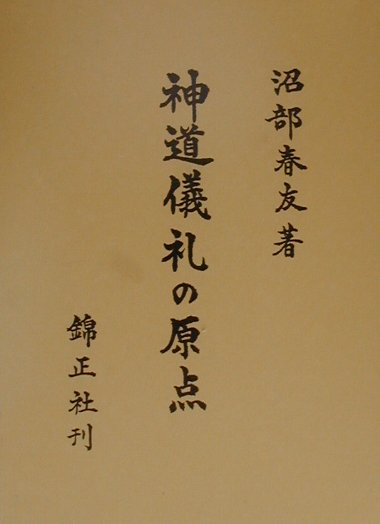 沼部春友著
神道儀礼の原点
錦正社刊